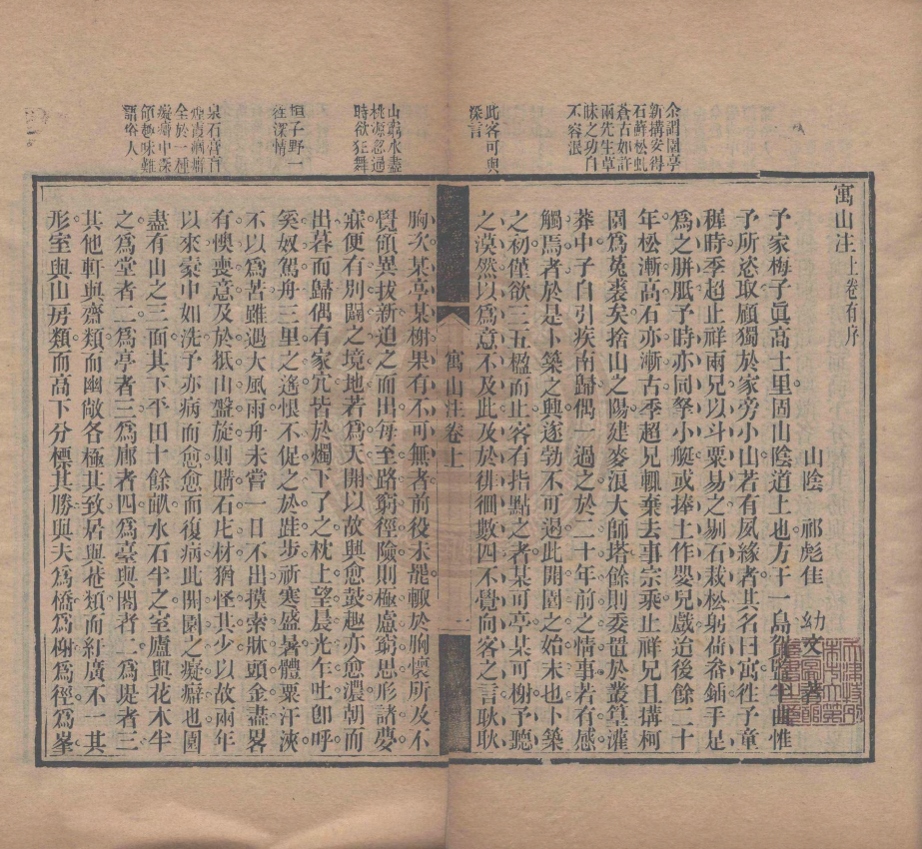 寓山注上卷有序
山陰 祁彪佳 幼文著
予家梅子眞高士里固山陰道上也方干一島賀監半曲惟
予所恣取顧獨於家旁小山若有夙緣者其名曰寓徃予童
穉時季超止祥兩兄以斗粟易之剔石栽松躬荷畚鍤手足
爲之胼胝予時亦同拏小艇或捧土作嬰兒戲迨後餘二十
年松漸高石亦漸古季超兄輒棄去事宗乘止祥兄且構柯
園爲菟裘矣捨山之陽建麥浪大師塔餘則委置於叢篁灌
莽中予自引疾南歸偶一過之於二十年前之情事若有感
觸焉者於是卜築之興遂勃不可遏此開園之始末也卜築
之初僅欲三五楹而止客有指點之者某可亭某可榭予聽
之漠然以爲意不及此及於徘徊數四不覺向客之言耿耿
胸次某亭某榭果有不可無者前役未罷輒於胸懷所及不
覺領異拔新迫之而出每至路窮徑險則極慮窮思形諸夢
寐便有別闢之境地若爲天開以故興愈鼓趣亦愈濃朝而
出暮而歸偶有家冗皆於燭下了之枕上望晨光乍吐卽呼
奚奴駕舟三里之遙恨不促之於跬步祈寒盛暑體粟汗浹
不以爲苦雖遇大風雨舟未嘗一日不出摸索牀頭金盡畧
有懊喪意及於抵山盤旋則購石庀材猶怪其少以故兩年
以來槖中如洗予亦病而愈愈而復病此開園之癡癖也園
盡有山之三面其下平田十餘畝水石半之室廬與花木半
之爲堂者二爲亭者三爲廊者四爲臺與閣者二爲堤者三
其他軒與齋類而幽敞各極其致居與菴類而紆廣不一其
形室與山房類而高下分標其勝與夫爲橋爲榭爲徑爲峯
余謂園亭
新搆安得
石蘚松虬
蒼古如許
兩先生草
昧之功自
不容泯
此客可與
深言
山窮水盡
桃源忽過
時欲狂舞
桓子野一
徃深情
泉石膏肓
煙霞痼癖
全於一種
癡癖中深
領趣味難
語俗人
寓山注卷上
一